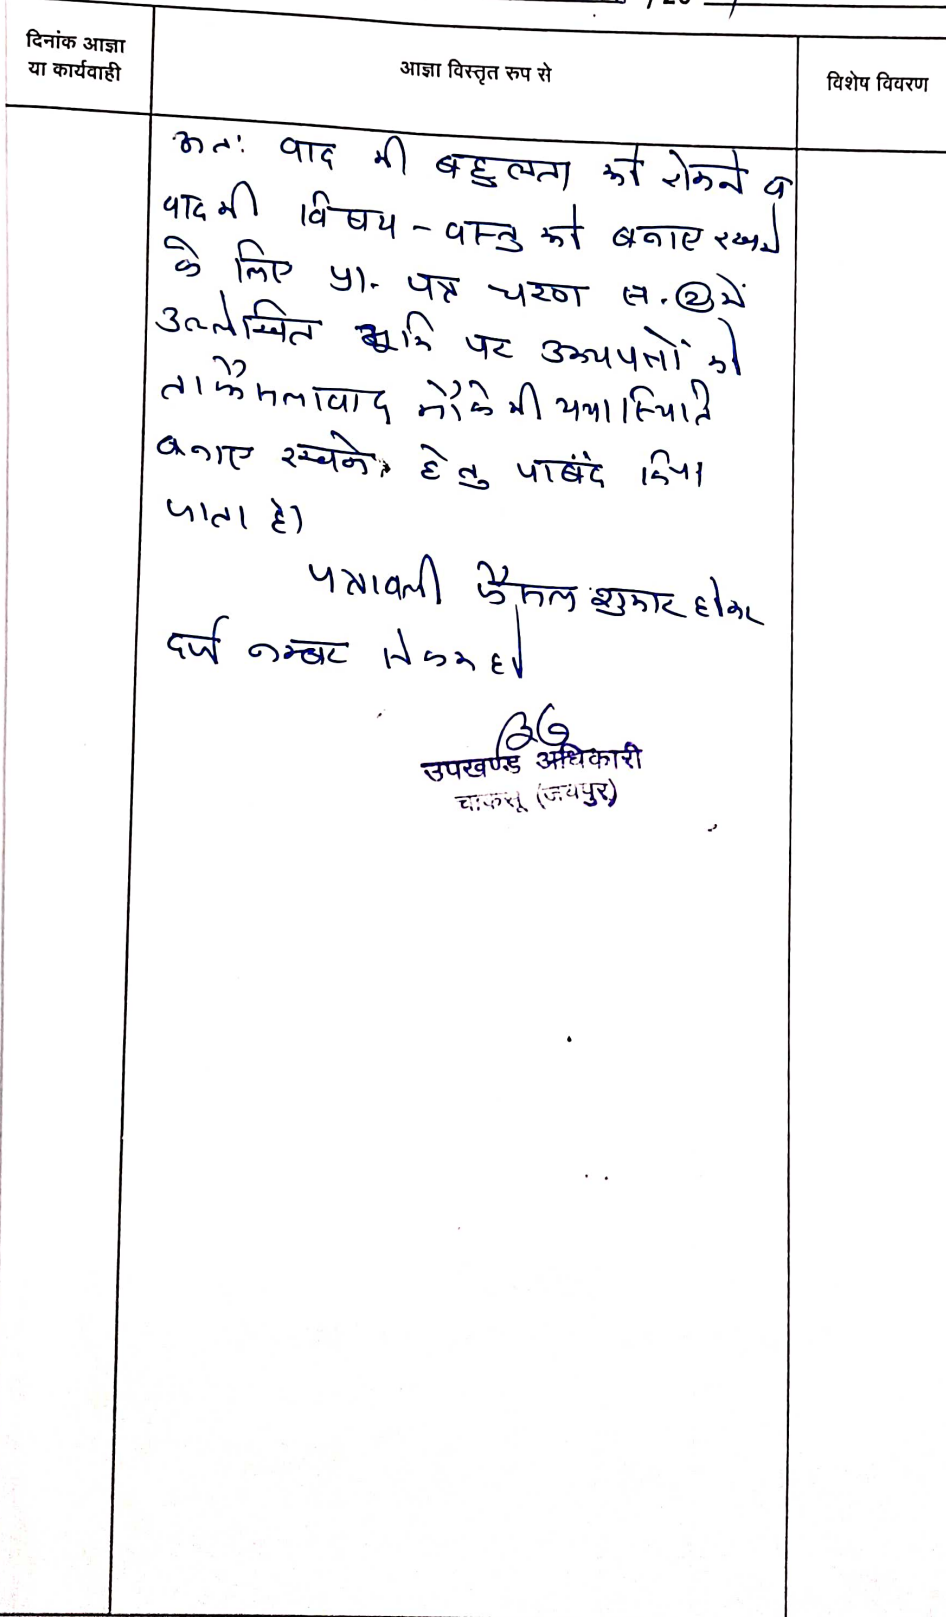 दिनांक आज्ञा
या कार्यवाही
आज्ञा विस्तृत रुप से
विशेष विवरण
अतः वाद की बहुलता को रोकने व
वाद की विषय-वस्तु को बनाए रखने
के लिए प्रा. पत्र चरण स. ② में
उल्लेखित भूमि पर उभयपक्षों को
ताफैसलावाद मौके की यथास्थिति
बनाए रखने हेतु पाबंद किया
जाता है।
पत्रावली फैसल शुमार होकर
दर्ज नम्बर से कम हो
उपखण्ड अधिकारी
चाकसू (जयपुर)